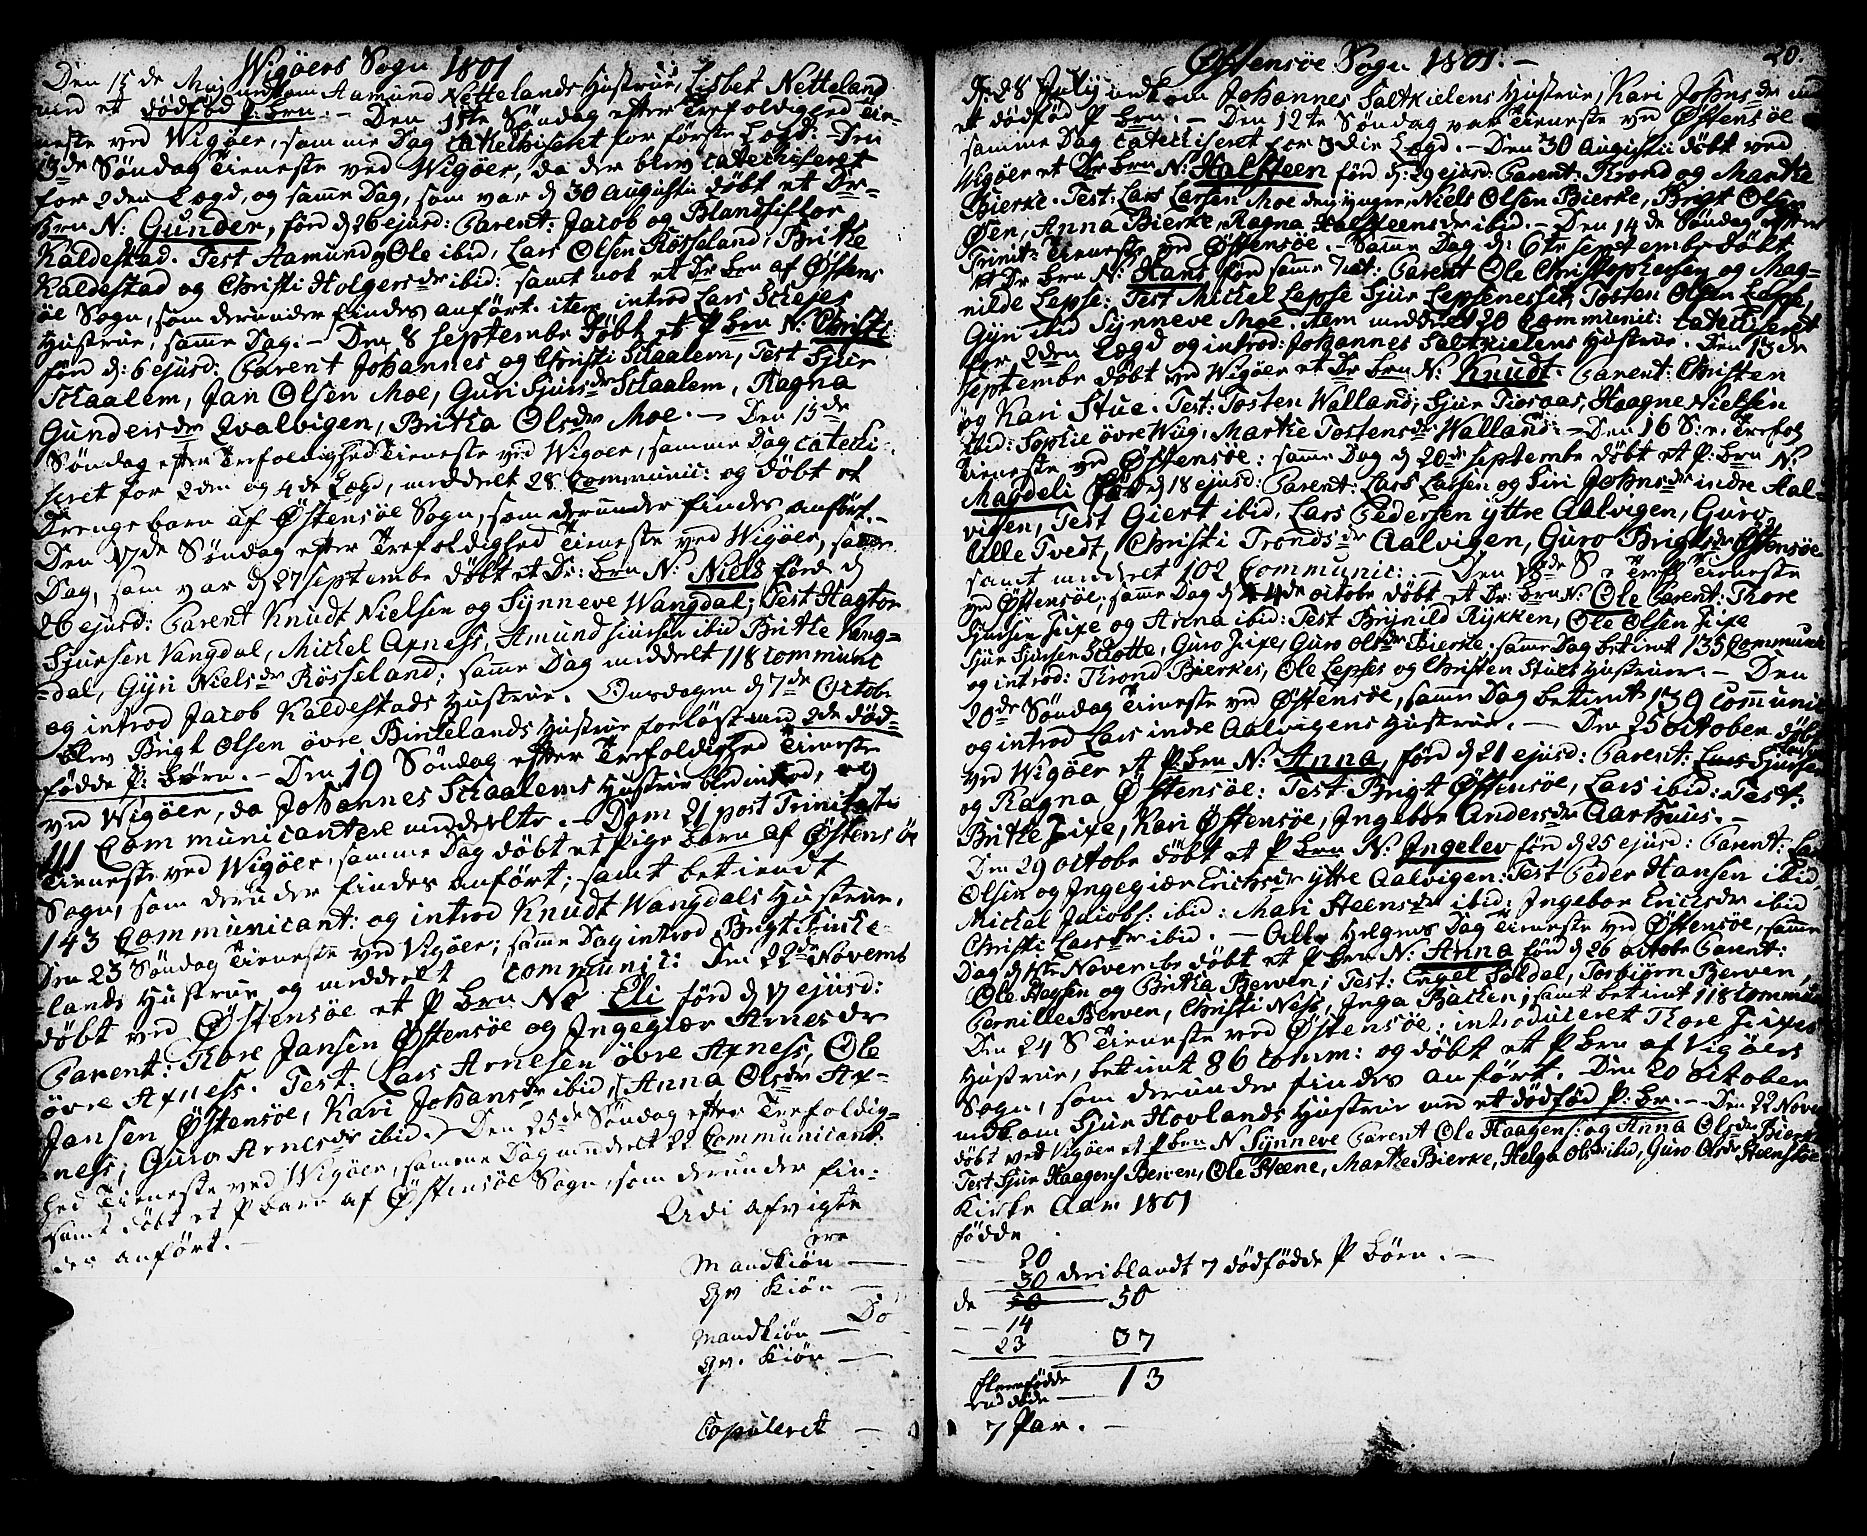 Wigöers Sogn 1801
Den 15de Maj nedkom Aamund Nettelands Hustrue, Lisbet Netteland
med et dödfød P: brn. - Den 11te Söndag efter Trefoldighed Tie-
neste ved Wigöer, samme Dag catechiseret for förste Lægd: Den
13de Söndag Tieneste ved Wigöer, da der blev catechiseret
for 2den Lægd, og samme Dag, som var d 30 Augusti döbt et Dr-
brn N: Gunder, förd d 26 ejusd: Parent: Jacob og Blandsiflor
Kaldestad. Test Aamund og Ole ibid, Lars Olsen Rösseland, Brithe
Kaldestad og Christi Holgersdr ibid: samt nok et Dr brn af Østens
öe Sogn, som derunder findes anfört. item introd Lars Skejes
Hustrue, samme Dag. - Den 8 Septembr döbt et P brn N: Christi
förd d: 6 ejusd: Parent Johannes og Christi Skaalem, Test Sjur
Skaalem, Jan Olsen Moe, Guri Sjursdr Skaalem, Ragna
Gundersdr Qvalvigen, Britha Olsdr Moe. - Den 15de
Söndag efter Trefoldighed Tieneste ved Wigöer, samme Dag catechi-
seret for 2den og 4de Lægd, meddelt 28 Communic: og döbt et
Drengebarn af Østensöe Sogn, som derunder findes anfört. -
Den 17de Söndag efter Trefoldighed Tieneste ved Wigöer, samme
Dag, som var d 27 Septembr döbt et Dr: brn N: Niels förd d
26 ejusd: Parent Knudt Nielsen og Synneve Wangdal; Test Hagtor
Sjursen Vangdal, Michel Axness, Amund Siursen ibid Brithe Vang-
dal, Gyri Nielsdr Rösseland; samme Dag meddelt 118 Communic
og introd Jacob Kaldestads Hustrue. Onsdagen d 7de Octob:
blev Brigt Olsen övre Birkelands Hustrue forlöst med 2de död-
födde P: Börn. - Den 19 Söndag efter Trefoldighed Tieneste
ved Wigöer, da Johannes Skaalems Hustrue blev introd, og
111 Communicantere meddeelte. - Dom 21 post Trinitatis
Tieneste ved Wigöer, samme Dag döbt et Pige barn af Østensöe
Sogn, som derunder findes anfört; samt betient
143 Communicant: og introd Knudt Wangdals Hustrue.
Den 23 Söndag Tieneste ved Vigöer; samme Dag introd Brigt Birke-
lands Hustrue og meddeelt communic: Den 22de Novemb
döbt ved Østensöe et P brn No Eli förd d 17 ejusd:
Parent: Thore Jansen Østensöe og Ingegiær Arnesdr
övre Axness. Test: Lars Arnesen övre Axness, Ole
Jansen Østensöe, Kari Johansdr ibid, Anna Olsdr Ax-
ness; Guro Arnesdr ibid. Den 25de Söndag efter Trefoldig-
hed Tieneste ved Wigöer, samme Dag meddeelt 22 Communicant.
samt döbt et P barn af Østensöe Sogn, som derunder fin-
des anfört. -
Udi afvigte
ere
Mandkiön -
Qv Kiön -
Dö
Mandkiön -
Qv. Kiön -
Copuleret -
Østensöe Sogn 1801. -
20.
D: 28 Julij nedkom Johannes Saltkielens Hustrue, Kari Johnsdr med
et dödfød P brn. - Den 12te Söndag var Tieneste ved Østensöe
samme Dag catechiseret for 3die Lægd. - Den 30 Augusti döbt ved
Wigöer et Dr brn N: Halsteen förd d: 29 ejusd: Parent: Thrond og Marthe
Bierke. Test: Lars Larsen Moe den yngere, Niels Olsen Bierke, Brigt Ols
Øen, Anna Bierke, Ragna Halsteensdr ibid. - Den 14de Söndag efter
Trinit: Tieneste ved Østensöe. - Samme Dag d: 6te Septembr döbt
et Dr brn N: Hans förd samme Nat: Parent Ole Christophersen og Mag-
nilde Lepse: Test Michel Lepse Sjur Lepsenesset, Tosten Olsen Lepse,
Gyri ibid Synneve Moe. item meddelt 20 Communic: catechiseret
for 2den Lægd og introd: Johannes Saltkielens Hustrue. Den 13de
Septembr döbt ved Wigöer et Dr brn N: Knudt. Parent: Christen
og Kari Stue. Test: Tosten Walland, Sjur Tioraas, Haagne Nielsen
ibid: Sophie övre Wiig, Marthe Tostensdr Walland. - Den 16 S: e. Trefol
Tieneste ved Østensöe: samme Dag d 20de Septembr döbt et P: brn N:
Magdeli förd d 18 ejusd: Parent: Lars Larsen og Siri Johnsdr indre Aal-
vigen, Test Giert ibid, Lars Pedersen yttre Aalvigen, Guro
lille Tvedt, Christi Trondsdr Aalvigen, Guro Brigtsdr Østensöe
samt meddelt 102 Communic: - Den 18de S e Tref Tieneste
ved Østensöe; samme Dag d 4de octobr döbt et Dr brn N: Ole Parent: Thore
Sjursen Fixe og Anna ibid: Test Brynild Rykken, Ole Olsen Fixe
Sjur Sjursen Skotte, Guro Fixe, Guro Olsdr Bierke; samme Dag betient 135 Communic
og introd: Thrond Bierkes, Ole Lepses og Christen Stues Hustruer. - Den
20de Söndag Tieneste ved Østensöe, samme Dag betient 139 Communic
og introd Lars indre Aalvigens Hustrue. - Den 25 october döbt
ved Wigöer et P brn N: Anna, förd d 21 ejusd: Parent: Lars Sjursen
og Ragna Østensöe: Test Brigt Østensöe, Lars ibid: Test:
Brithe Fixe, Kari Østensöe, Ingebor Andersdr Aarhuus. -
Den 29 octobr döbt et P brn N: Ingelev förd d 25 ejusd: Parent: Lars
Olsen og Ingegiær Erichsdr yttre Aalvigen: Test Peder Hansen ibid,
Michel Jacobs: ibid: Mari Steensdr ibid: Ingebor Ericksdr ibid
Christi Larsdr ibid. - Alle Helgens Dag Tieneste ved Østensöe, samme
Dag d 1te Novembr döbt et P brn N: Anna förd d 26 octobr Parent:
Ole Hagsen og Britha Berven; Test: Engel Soldal, Torbiörn Berven,
Pernille Berven, Christi Ness, Inga Bakken, samt betient 118 Commun
Den 24 S Tieneste ved Østensöe; introduceret Thore Fixes
Hustrue, betient 86 Comm: og döbt et P brn af Vigöers
Sogn, som derunder findes anfört. Den 20 october
nedkom Sjur Hovlands Hustrue med et dödfød P: br. - Den 22 Novem
döbt ved Vigöer et P brn N Synneve Parent Ole Haagens: og Anna Olsdr Bierke
Test Sjur Haagens Berven, Ole Steene, Marthe Bierke, Helga Olsdr ibid, Guro Olsdr Steenstöe
Kirke Aar 1801
födde
- 20
- 30 deriblandt 7 dödfødde P börn. -
de 50 50
- 14
- 23 37
flere födde
end döde - 13
7 Par. -